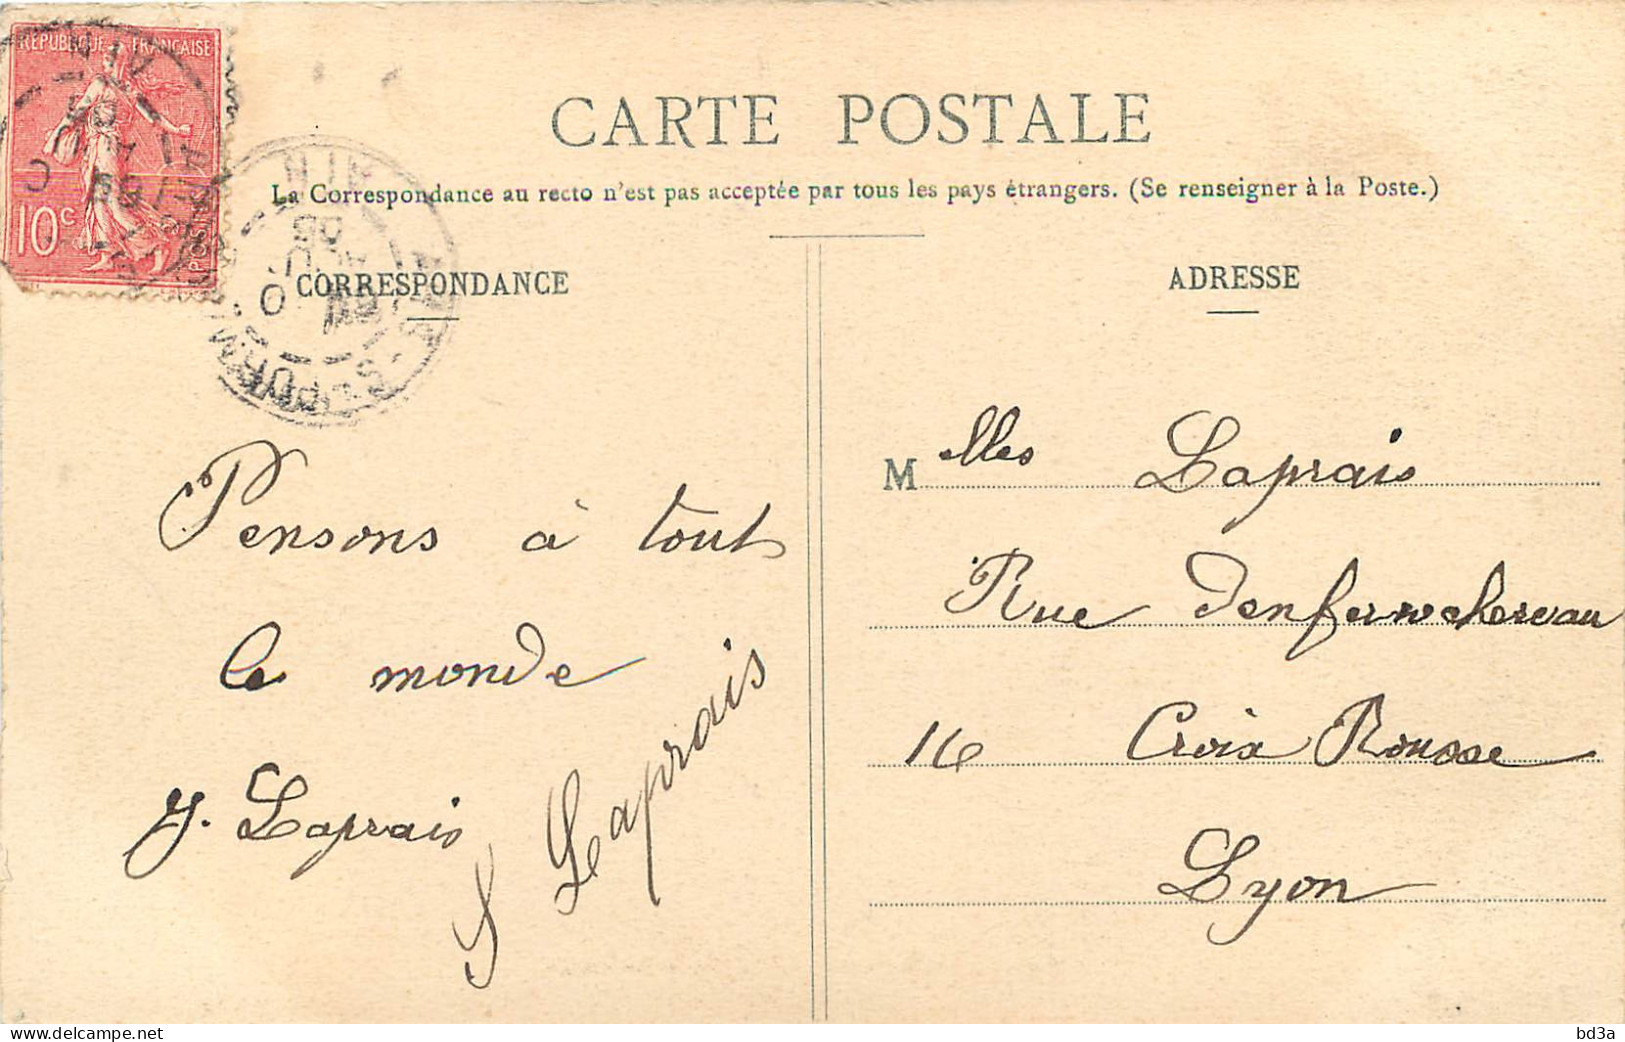 REPUBLIQUE FRANÇAISE
10c
POSTES
AIN
05
CARTE POSTALE
La Correspondance au recto n'est pas acceptée par tous les pays étrangers. (Se renseigner à la Poste.)
CORRESPONDANCE
Pensons à tout
le monde
y. Laprais
S Laprais
ADRESSE
Melles Laprais
Rue Denferrochereau
16 Croix Rousse
Lyon
delcampe.net
bd3a